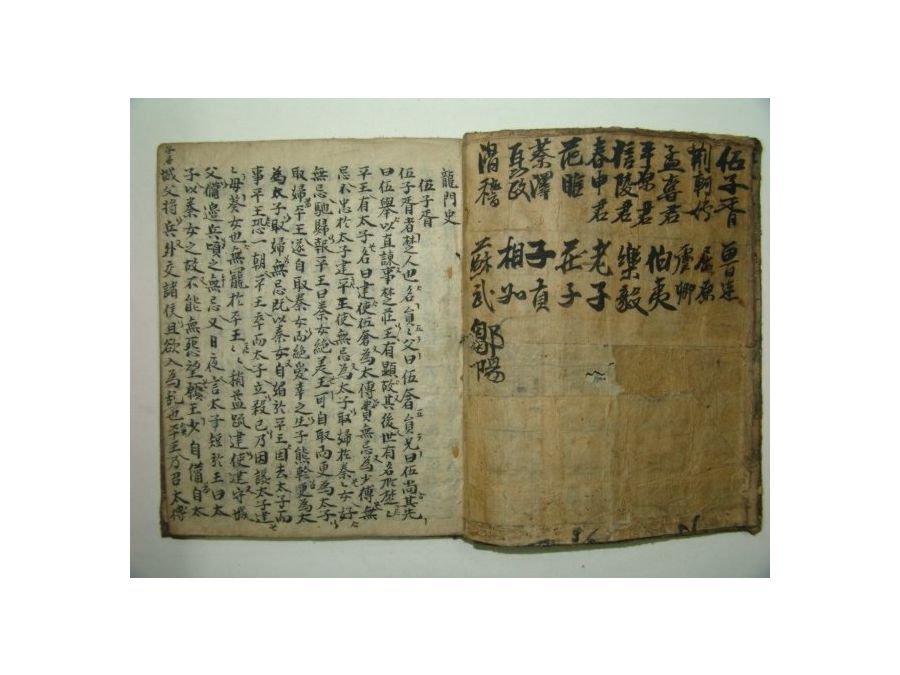 伍子胥 魯連
荊軻傳 屈原
孟嘗君 虞卿
平原君 伯夷
信陵君 樂毅
春申君 老子
范雎 莊子
蔡澤 子貢
聶政 相如
滑稽 蘇武 鄒陽
龍門史
伍子胥
伍子胥者楚人也名員〻父曰伍奢員兄曰伍尚其先
曰伍舉以直諫事楚莊王有顯故其後世有名於楚〻
平王有太子名曰建使伍奢為太傅費無忌為少傅無
忌不忠於太子建平王使無忌為太子取婦於秦〻女好
無忌馳歸報平王曰秦女絶美王可自取而更為太子
取婦平王遂自取秦女而絶愛幸之生子熊軫更為太
為太子取婦無忌既以秦女自媚於平王因去太子而
事平王恐一朝平王卒而太子立殺己乃因讒太子建
〻母蔡女也無寵於平王〻稍益踈建使建守城
父備邊兵頃之無忌又日夜言太子短於王曰太
子以秦女之故不能無怨望願王少自備自太
子居城父將兵外交諸侯且欲入為乱也平王乃召太傅